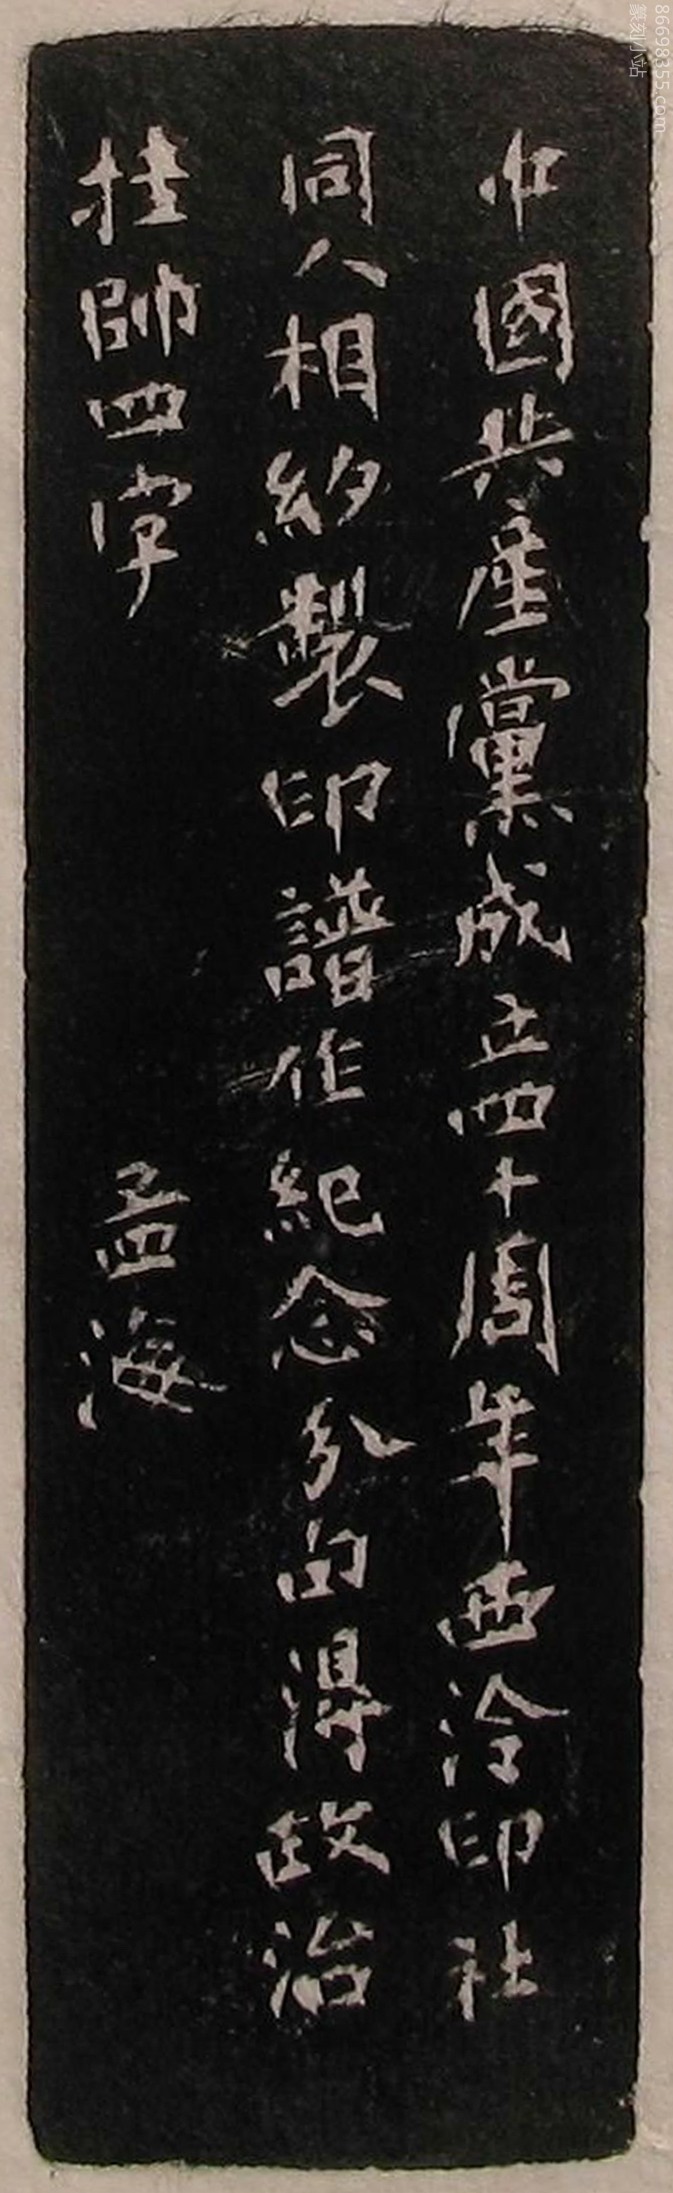 中國共產黨成立四十周年西泠印社
同人相約製印譜作紀念分句得政治
挂帥四字
孟海
86698355.com
篆刻小站